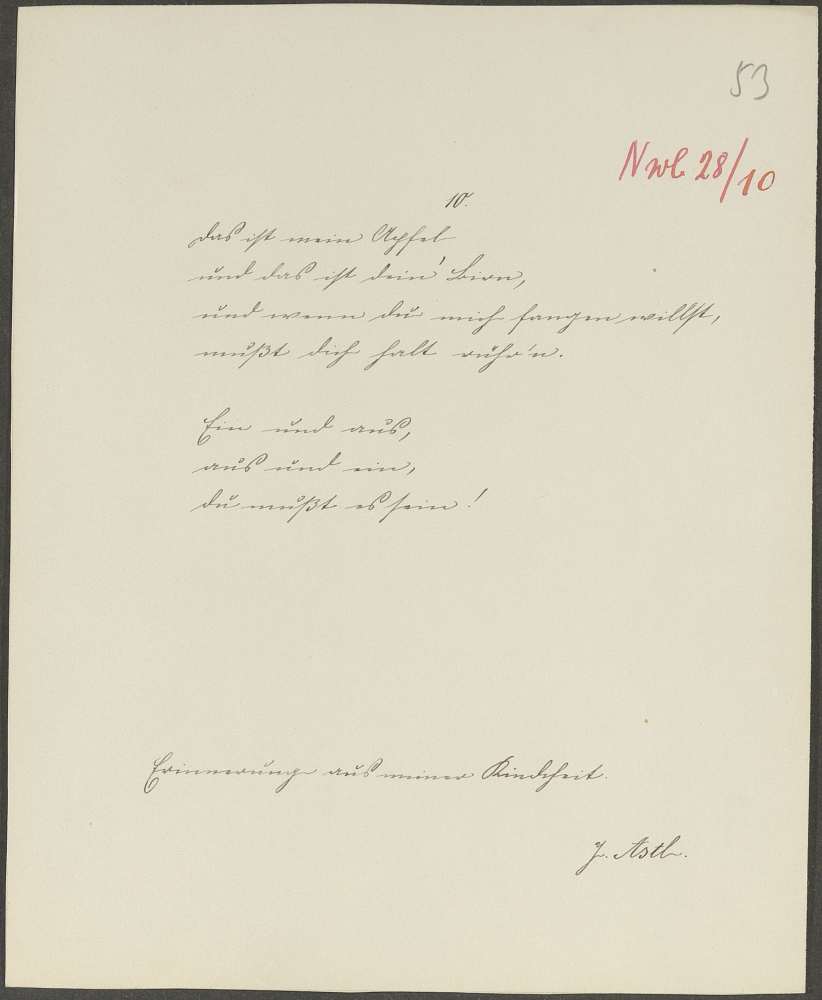 53
Nwb 28/10
10.
Das ist mein Apfel
und das ist dein' Birn,
und wenn du mich fangen willst,
mußt dich halt rühr'n.
Ein und aus,
aus und ein,
du mußt es sein!
Erinnerung aus meiner Kindheit.
J. Astl.